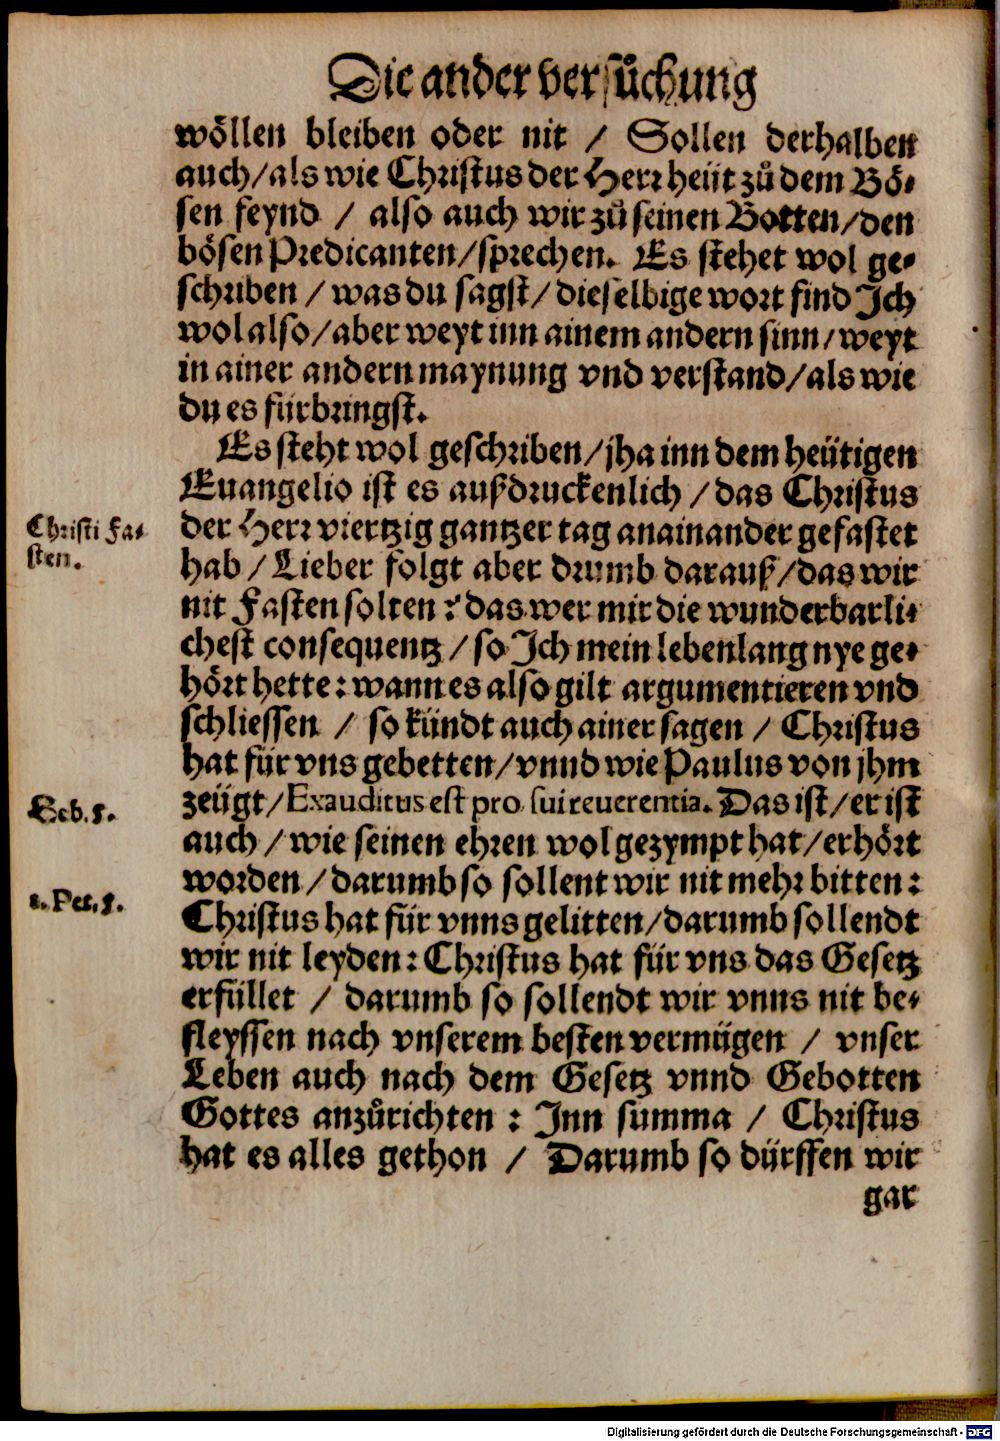 Die ander versůchung
wöllen bleiben oder nit / Sollen derhalben
auch/als wie Christus der Herr heüt zů dem Bö-
sen feynd / also auch wir zů seinen Botten/den
bösen Predicanten/sprechen. Es stehet wol ge-
schriben / was du sagst/dieselbige wort find Jch
wol also/aber weyt inn ainem andern sinn/weyt
in ainer andern maynung vnd verstand/als wie
du es fürbringst.
Es steht wol geschriben/jha inn dem heütigen
Euangelio ist es außdruckenlich / das Christus
Christi Fa-
sten.
der Herr viertzig gantzer tag anainander gefastet
hab / Lieber folgt aber drumb darauß/das wir
nit Fasten solten ? das wer mir die wunderbarli-
chest consequentz / so Jch mein lebenlang nye ge-
hört hette: wann es also gilt argumentieren vnd
schliessen / so kündt auch ainer sagen / Christus
hat für vns gebetten/vnnd wie Paulus von jhm
Heb. 5.
zeügt/Exauditus est pro sui reuerentia. Das ist/er ist
auch / wie seinen ehren wol gezympt hat/erhört
worden / darumb so sollent wir nit mehr bitten:
1. Pet. 5.
Christus hat für vnns gelitten/darumb sollendt
wir nit leyden: Christus hat für vns das Gesetz
erfüllet / darumb so sollendt wir vnns nit be-
fleyssen nach vnserem besten vermügen / vnser
Leben auch nach dem Gesetz vnnd Gebotten
Gottes anzůrichten : Jnn summa / Christus
hat es alles gethon / Darumb so dürffen wir
gar
Digitalisierung gefördert durch die Deutsche Forschungsgemeinschaft - DFG